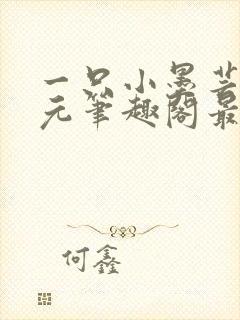 一只小黑芸
元笔趣阁最
何鑫